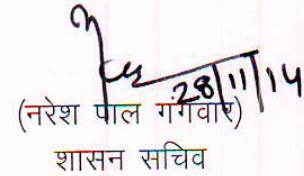 28/11/14
(नरेश पाल गंगवार)
शासन सचिव